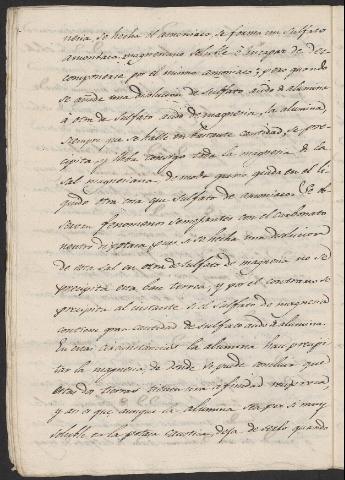 nesia se hecha el amoniaco, se forma un sulfato
amoniaco magnesiano soluble é incapaz de des-
componerse por el mismo amoniaco; pero quando
se añade una disolucion de sulfato acido de alumina
á otra de sulfato acido de magnesia, la alumina
siempre que se halle en bastante cantidad, se pre-
cipita y lleba consigo toda la magnesia de la
sal magnesiana, de modo que no queda en el li-
quido otra cosa que sulfato de amoniaco. Se ob-
serven fenomenos semejantes con el carbonato
neutro de potasa, pues si se hecha una disolucion
de esta sal en otra de sulfato de magnesia no se
precipita esta base terrea, y por el contrario se
precipita al instante si el sulfato de magnesia
contiene gran cantidad de sulfato acido de alumina.
En estas circunstancias la alumina hace precipi-
tar la magnesia; de donde se puede concluir que
estas dos tierras tienen una afinidad reciproca
y asi es que aunque la alumina sea por si muy
soluble en la potasa caustica, deja de serlo quando